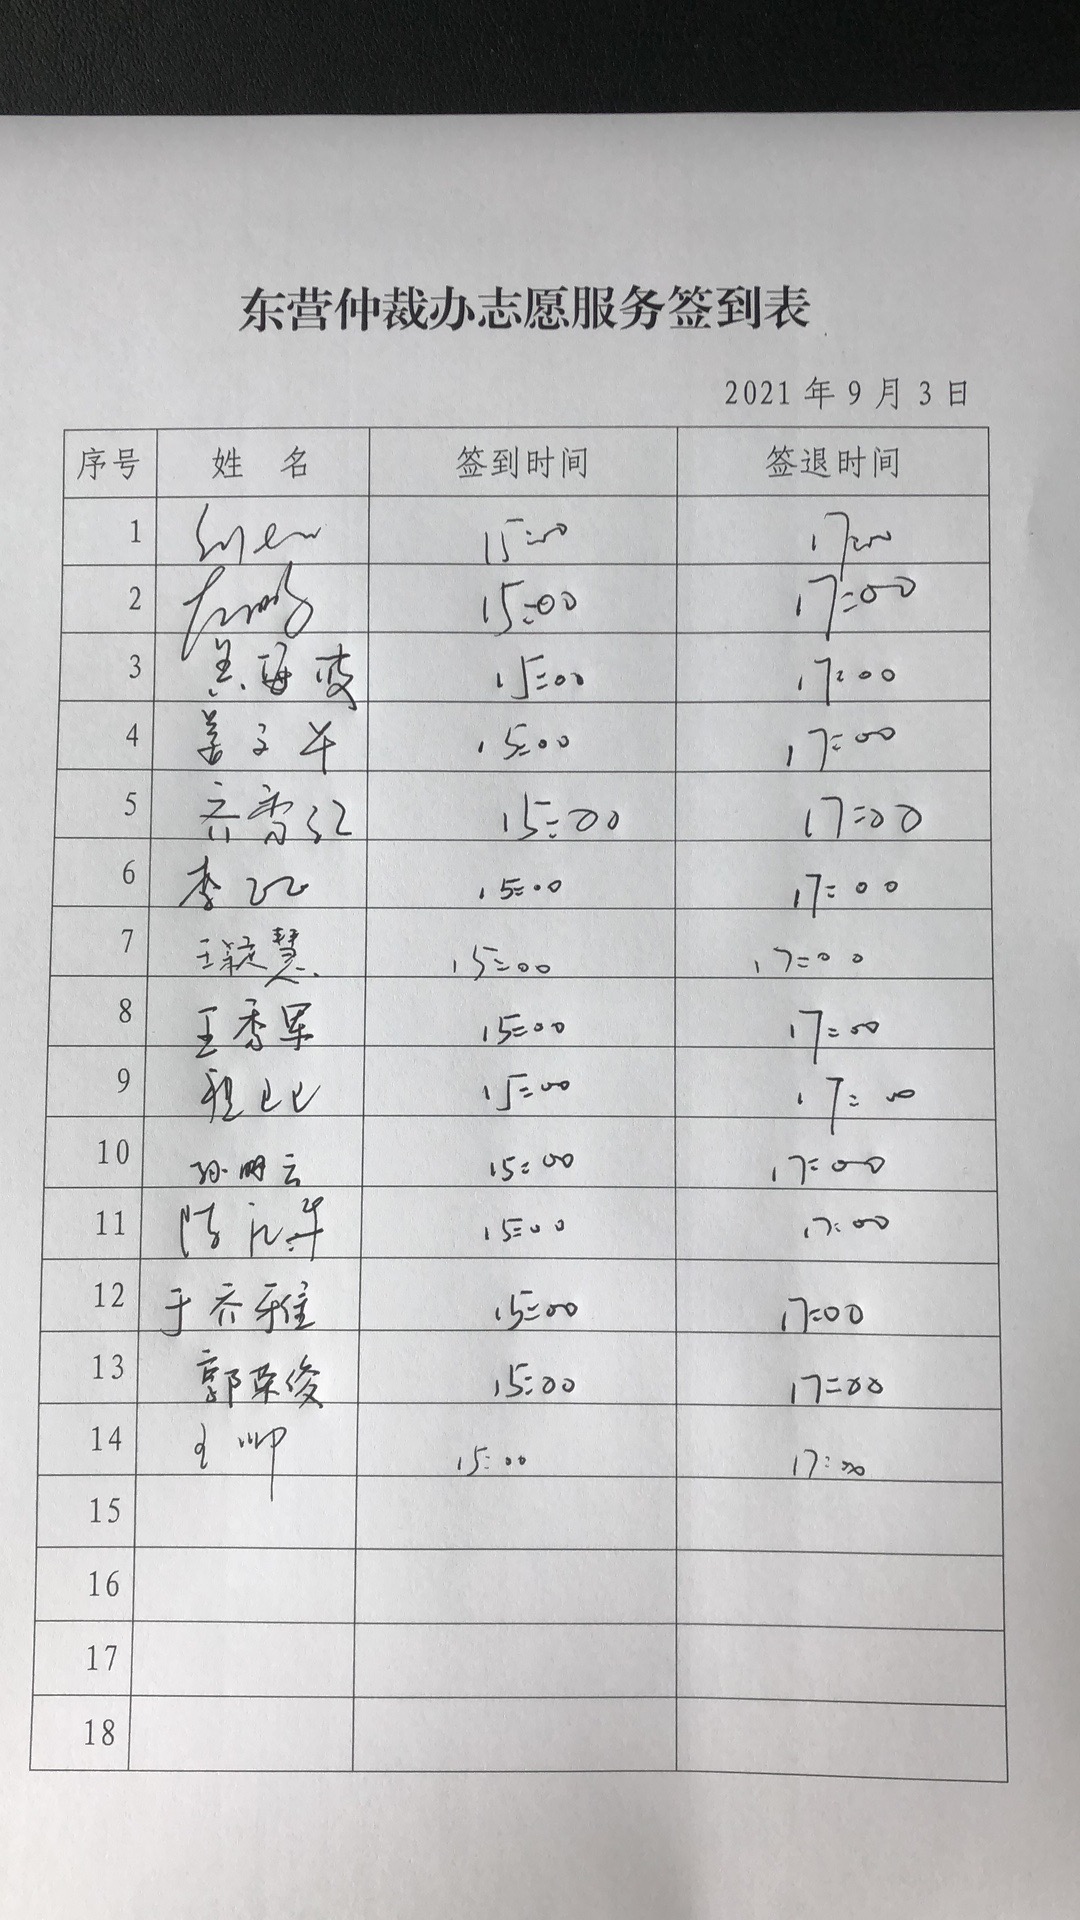 东营仲裁办志愿服务签到表
2021 年 9 月 3 日
序号 姓 名 签到时间 签退时间
1 15:00 17:00
2 15:00 17:00
3 吴海波 15:00 17:00
4 姜子午 15:00 17:00
5 齐雪红 15:00 17:00
6 李 15:00 17:00
7 王颖慧 15:00 17:00
8 王秀军 15:00 17:00
9 程 15:00 17:00
10 孙明云 15:00 17:00
11 陈 华 15:00 17:00
12 于乔雅 15:00 17:00
13 郭荣俊 15:00 17:00
14 王帅 15:00 17:00
15
16
17
18